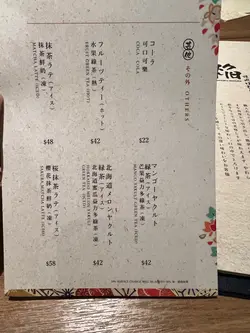 其他
その外 OTHERS
コーラ
可口可樂
COCA COLA
$22
フルーツティー（ホット）
水果綠茶（熱）
FRUIT GREEN TEA (HOT)
$42
抹茶ラテ（アイス）
抹茶鮮奶（凍）
MATCHA LATTE (ICED)
$48
マンゴーヤクルト
緑茶（アイス）
芒果益力多綠茶（凍）
MANGO YAKULT GREEN TEA (ICED)
$42
北海道メロンヤクルト
緑茶（アイス）
北海道蜜瓜益力多綠茶（凍）
HOKKAIDO MELON YAKULT
GREEN TEA (ICED)
$42
桜抹茶ラテ（アイス）
櫻花抹茶鮮奶（凍）
SAKURA MATCHA LATTE (ICED)
$58